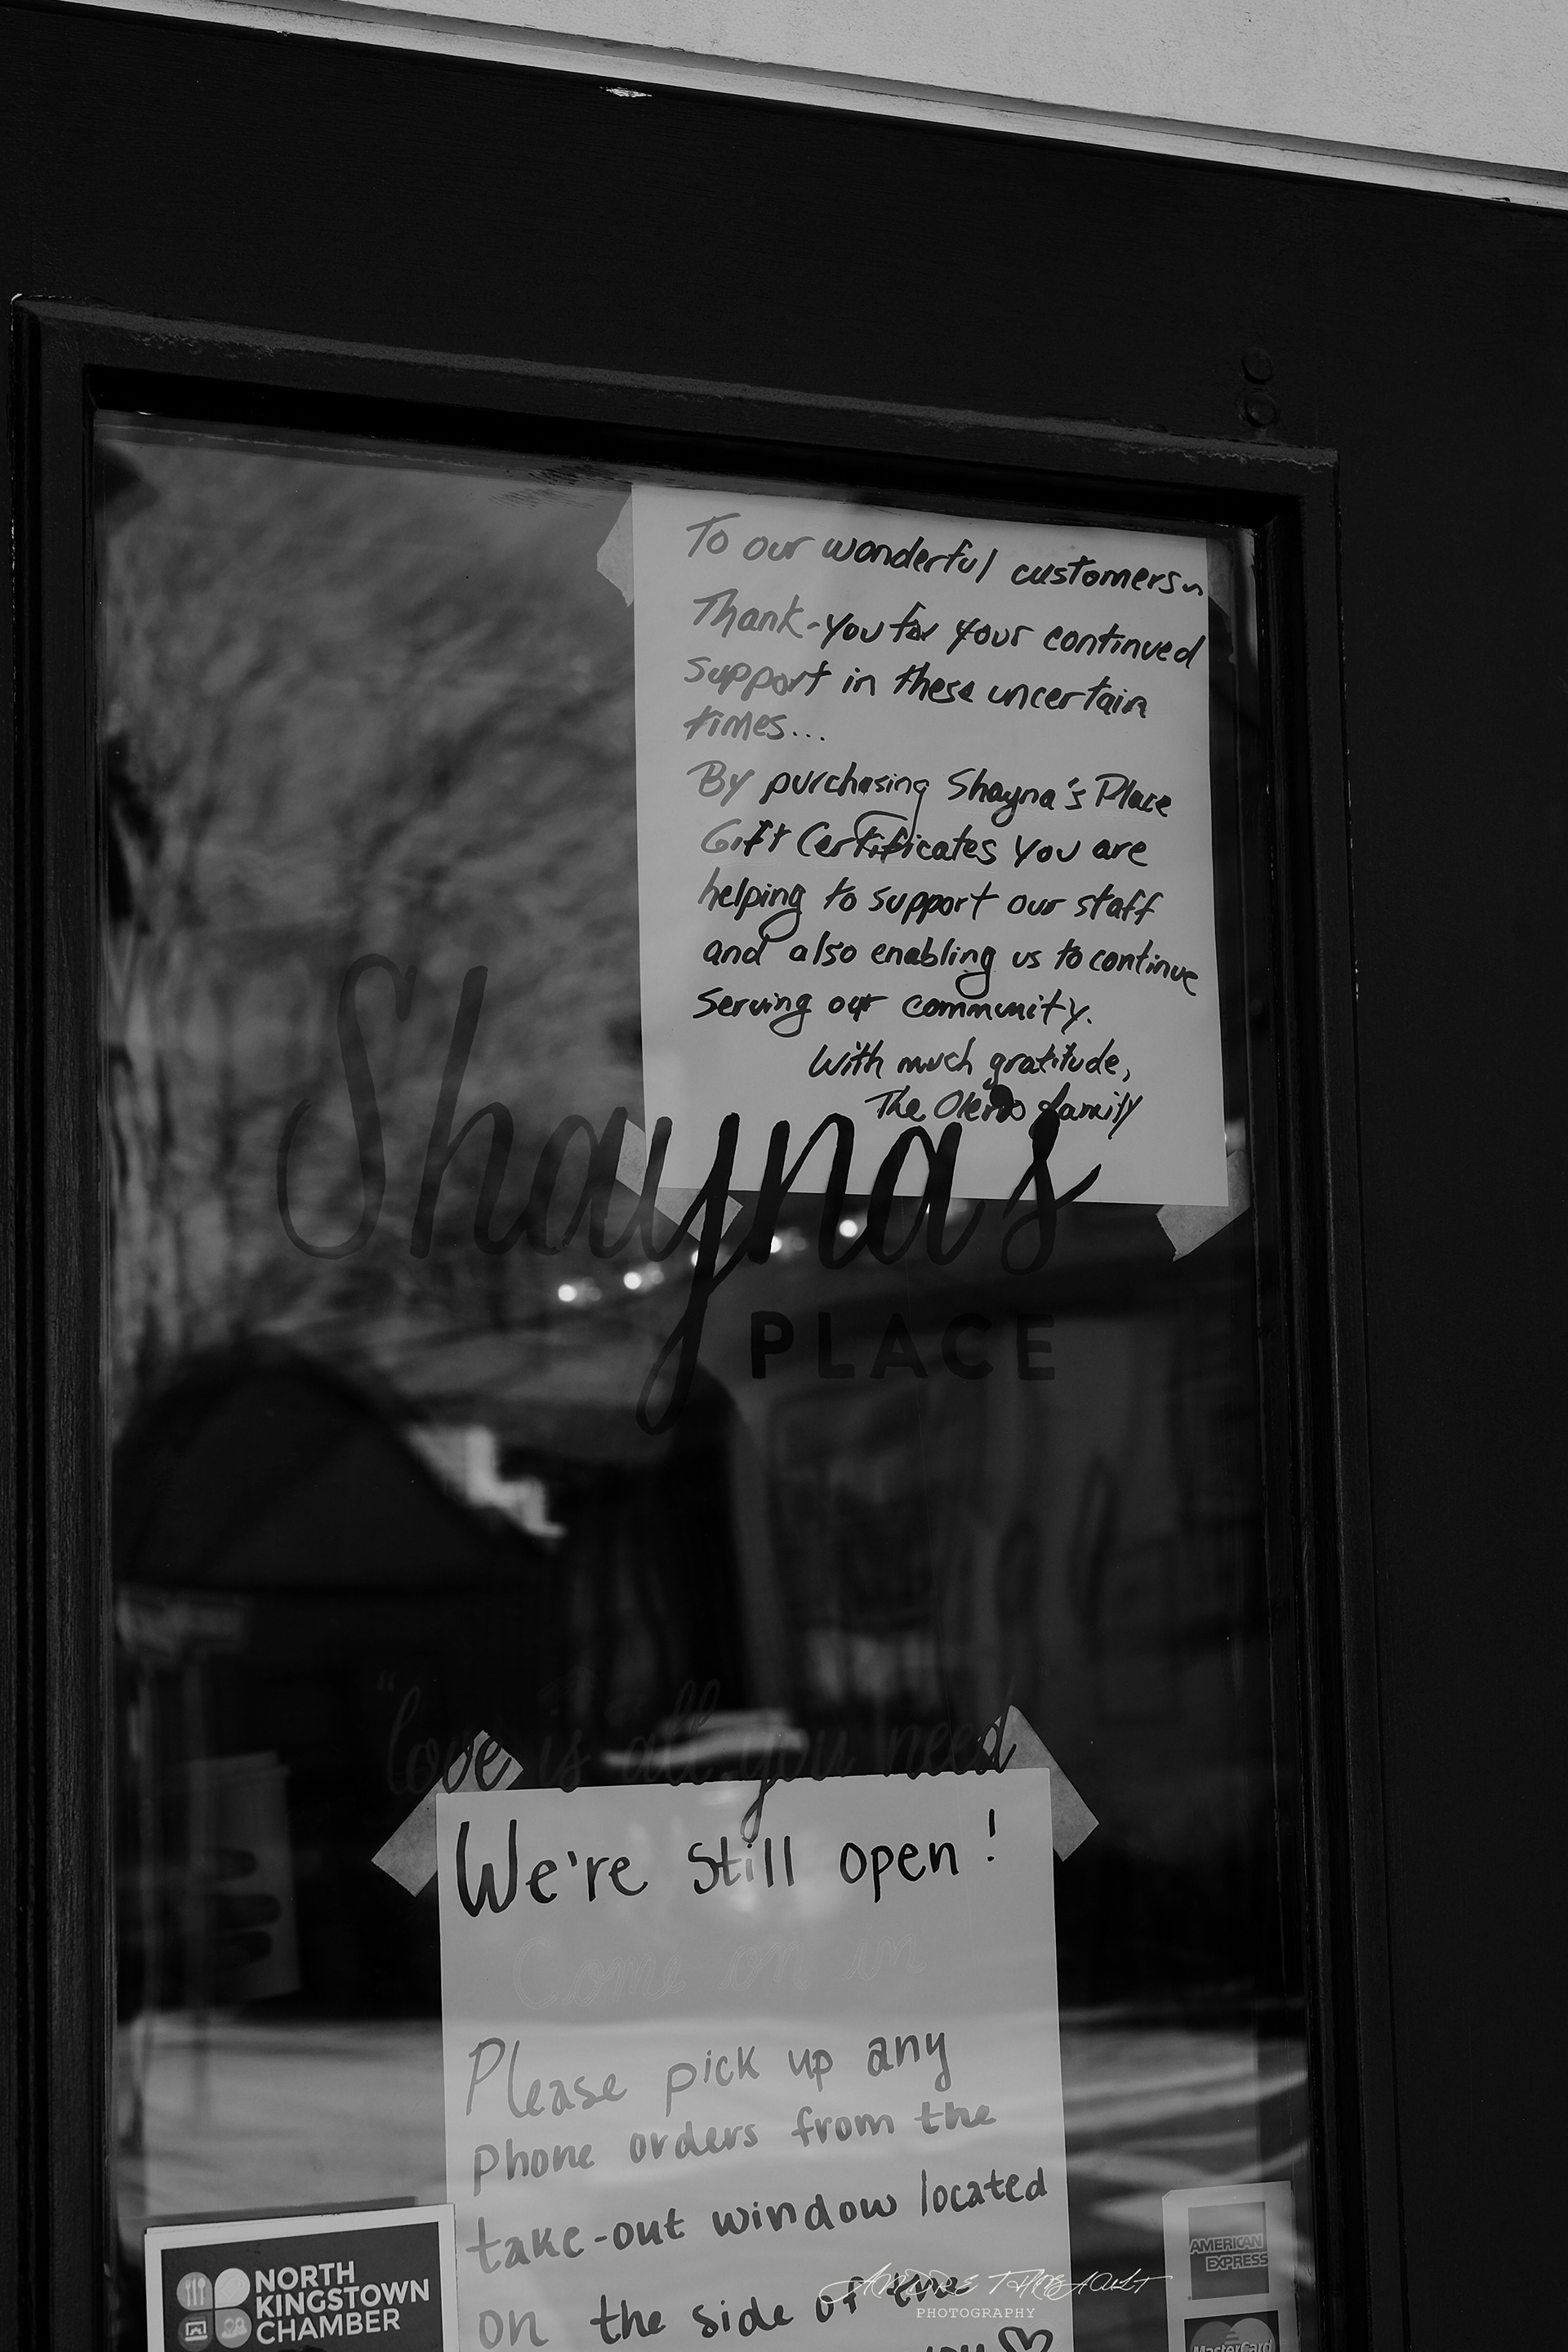 To our wonderful customers~
Thank-you for your continued
support in these uncertain
times...
By purchasing Shayna's Place
Gift Certificates you are
helping to support our staff
and also enabling us to continue
serving our community.
With much gratitude,
The family
Shayna's
PLACE
"love is all you need
We're still open!
Come on in
Please pick up any
phone orders from the
take-out window located
on the side of the
you
NORTH
KINGSTOWN
CHAMBER
AMERICAN
EXPRESS
MasterCard
ANDRE THIBAULT
PHOTOGRAPHY